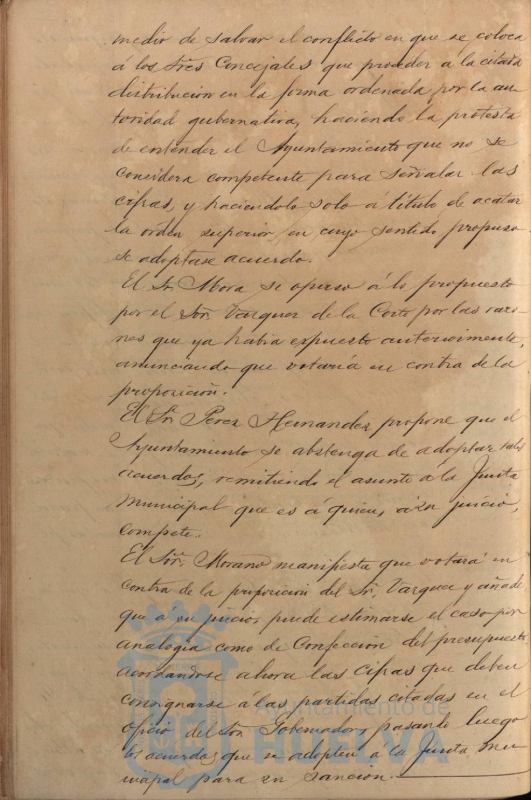 medio de salvar el conflicto en que se coloca
á los Sres Concejales que proceder á la citada
distribucion en la forma ordenada por la au
toridad gubernativa, haciendo la protesta
de entender el Ayuntamiento que no se
considera competente para señalar las
cifras, y haciendolo solo á título de acatar
la orden superior, en cuyo sentido propuso
se adoptase acuerdo.
El Sr. Mora se opuso á lo propuesto
por el Sor. Vazquez de la Corte por las razo
nes que ya habia expuesto anteriormente,
anunciando que votaría en contra de la
proposicion.
El Sr. Perez Hernandez propone que el
Ayuntamiento se abstenga de adoptar tales
acuerdos, remitiendo el asunto á la Junta
Municipal que es á quien, á su juicio,
compete.
El Sor. Morano manifiesta que votará en
contra de la proposicion del Sr. Vazquez y añade
que á su juicio, puede estimarse el caso por
analogía como de Confeccion del presupuesto
acordandose ahora las cifras que deben
consignarse á las partidas citadas en el
oficio del Sor. Gobernador, pasando luego
los acuerdos que se adopten á la Junta mu
nicipal para su sancion.
Ayuntamiento de
HUELVA